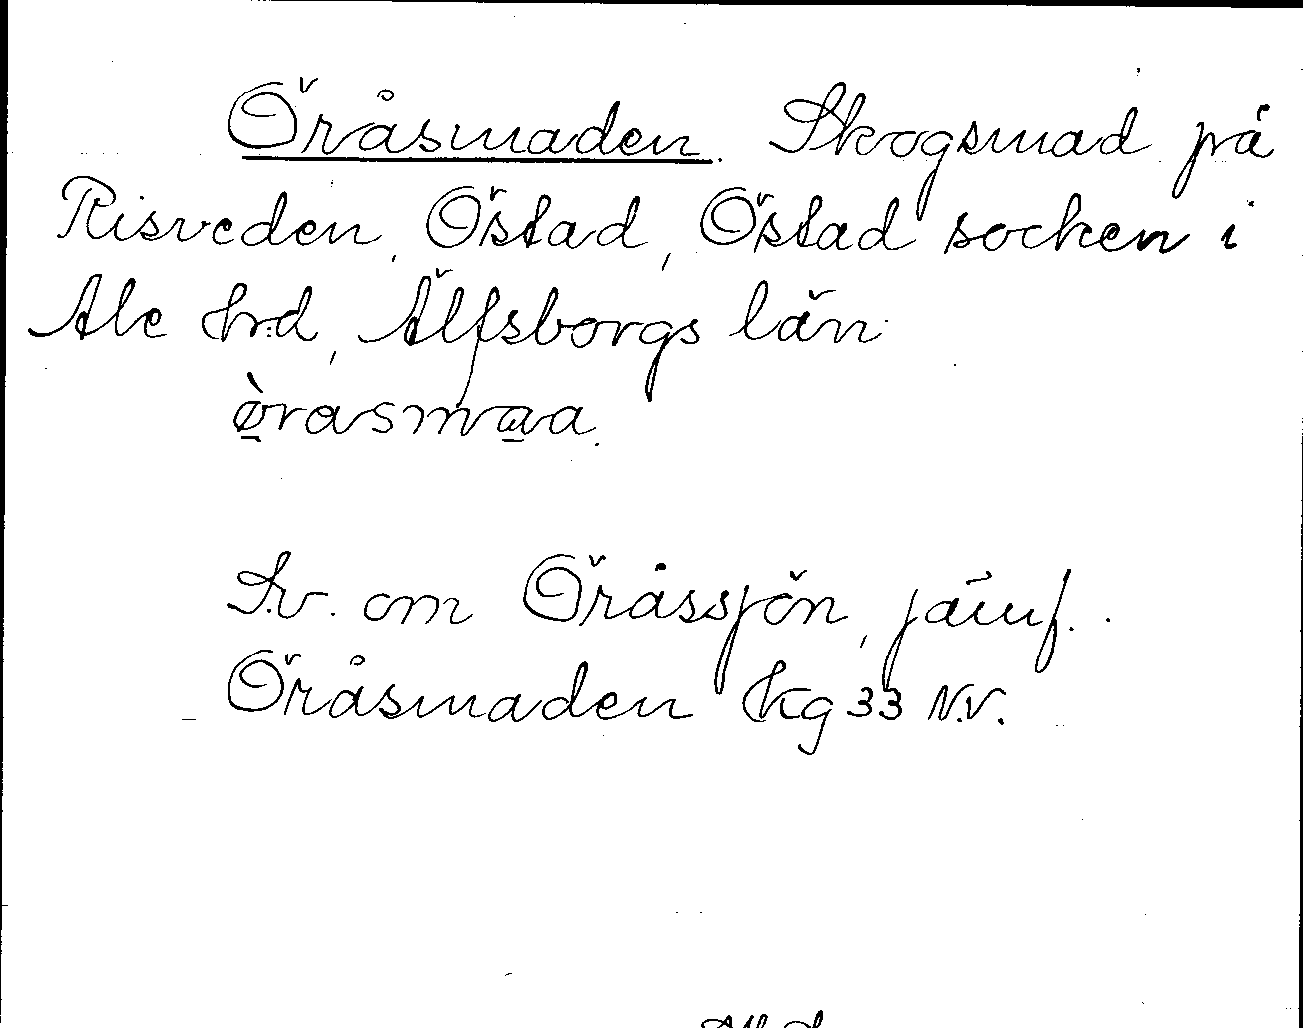 Öråsmaden. Skogsmad på
Risveden, Östad, Östad socken i
Ale hrd, Älfsborgs län
ø̀rasmaa.
Sv. om Öråssjön, jämf.
Öråsmaden Hkg 33 N.V.